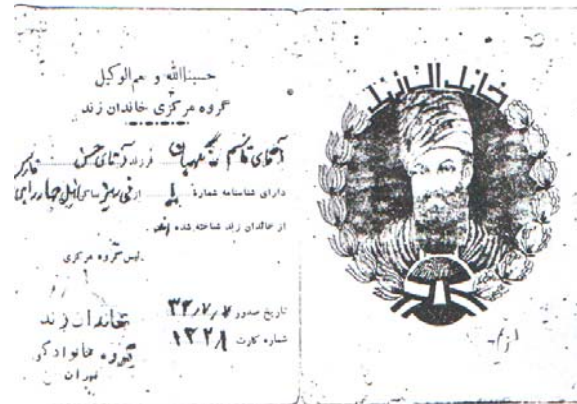 حسبناالله و نعم الوکیل
گروه مرکزی خاندان زند
آقای قاسم نگهبان فرزند آقای حسن
دارای شناسنامه شمارهٔ از نی ریز ساکن
از خاندان زند شناخته شده اند
رئیس گروه مرکزی
تاریخ صدور ۳۳٫۷٫۷
شماره کارت ۱۳۲۸
خاندان زند
گروه خانوادگی
تهران
خاندان زند